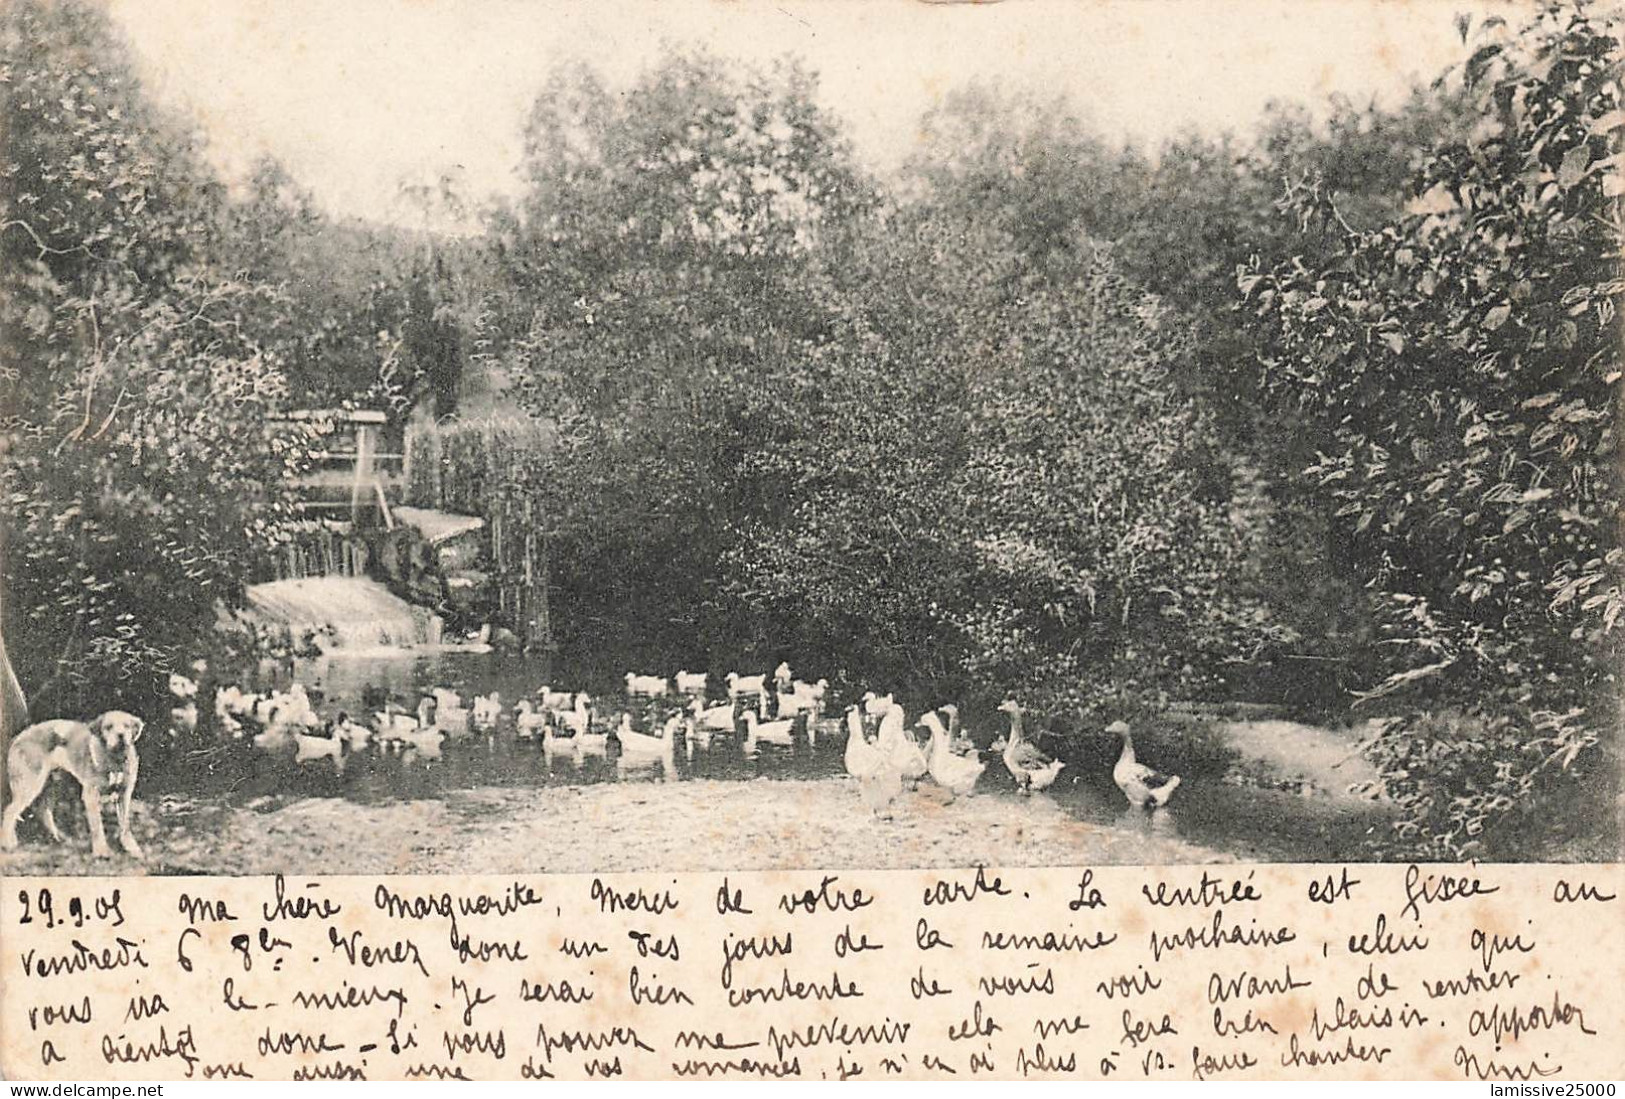 29.9.05 Ma chère Marguerite, Merci de votre carte. La rentrée est fixée au
vendredi 6 8bre. Venez donc un des jours de la semaine prochaine, celui qui
vous ira le mieux. Je serai bien contente de vous voir avant de rentrer.
A bientôt donc - Si vous pouvez me prévenir cela me fera bien plaisir. Apportez
donc aussi une de vos romances, je n'en ai plus à vs. faire chanter Nini
delcampe.net
lamissive25000